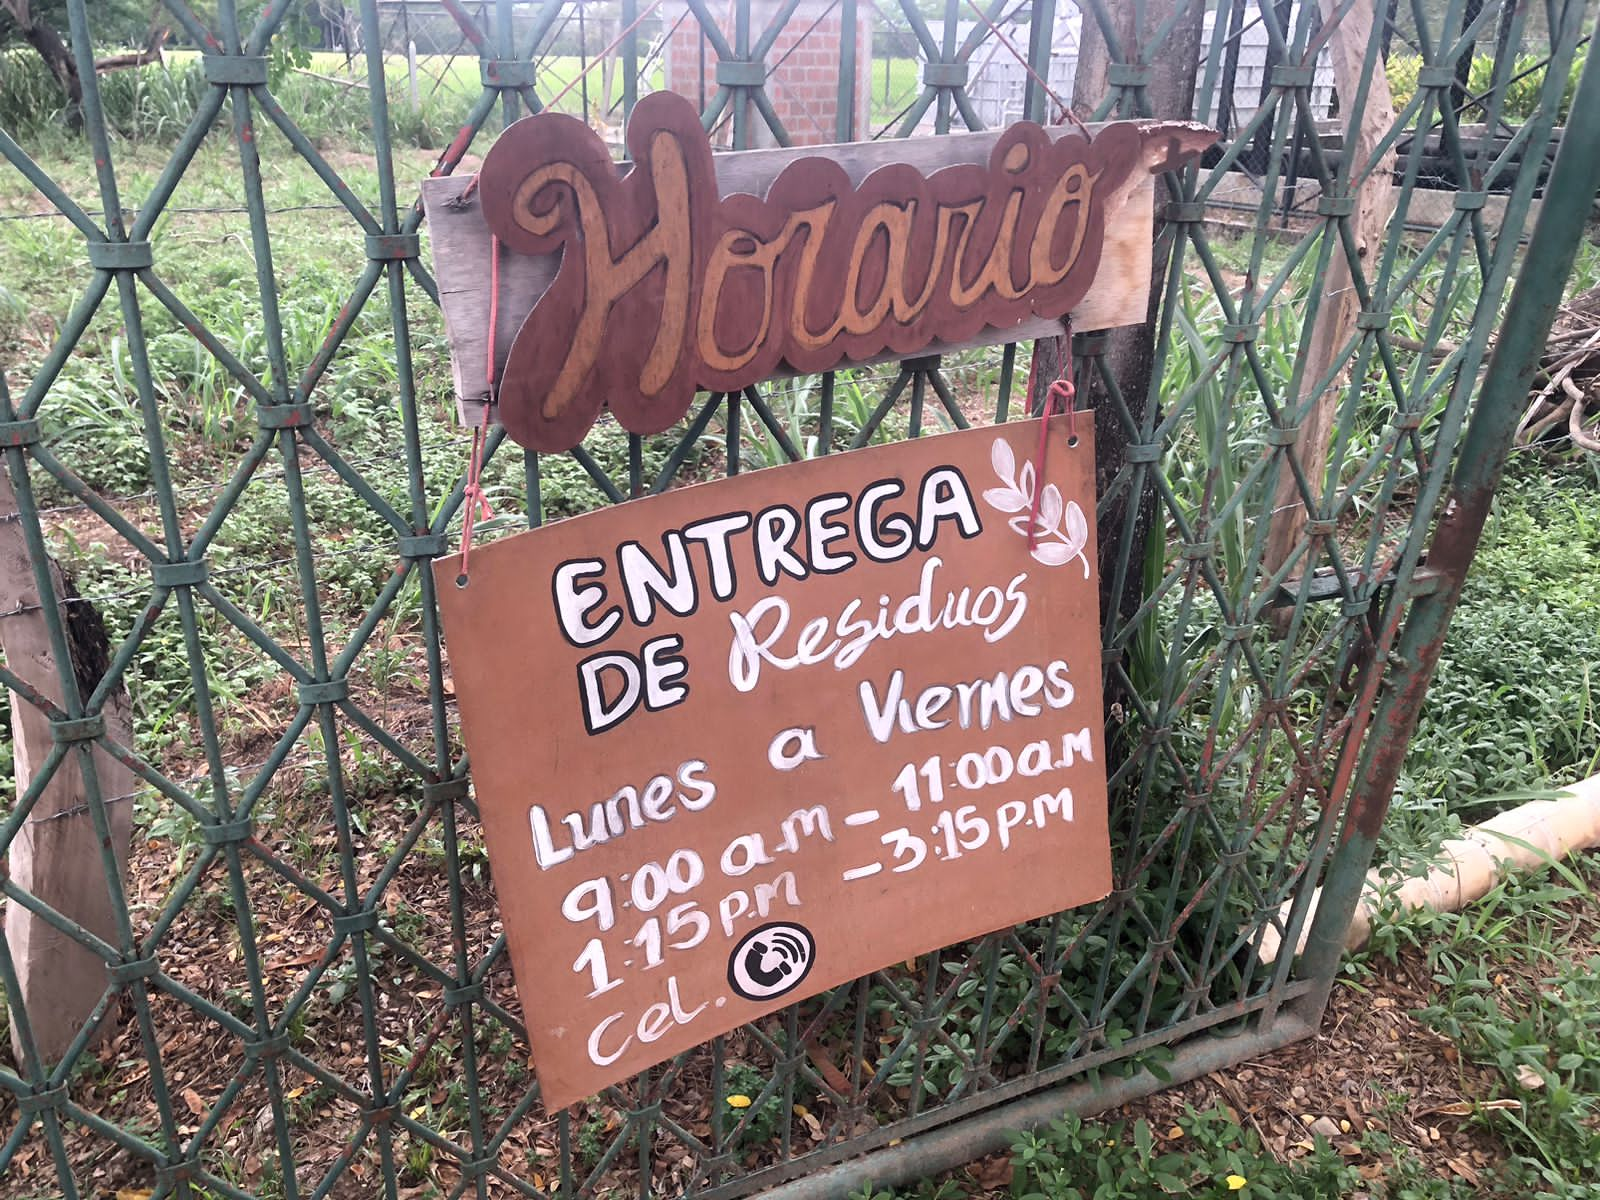 Horario
ENTREGA
DE Residuos
Lunes a Viernes
9:00 a.m - 11:00 a.m
1:15 p.m - 3:15 p.m
Cel.